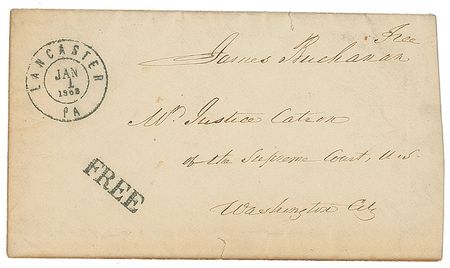 LANCASTER
JAN
1
PA
FREE
Free
James Buchanan
Mr. Justice Catron
of the Supreme Court, U.S.
Washington City